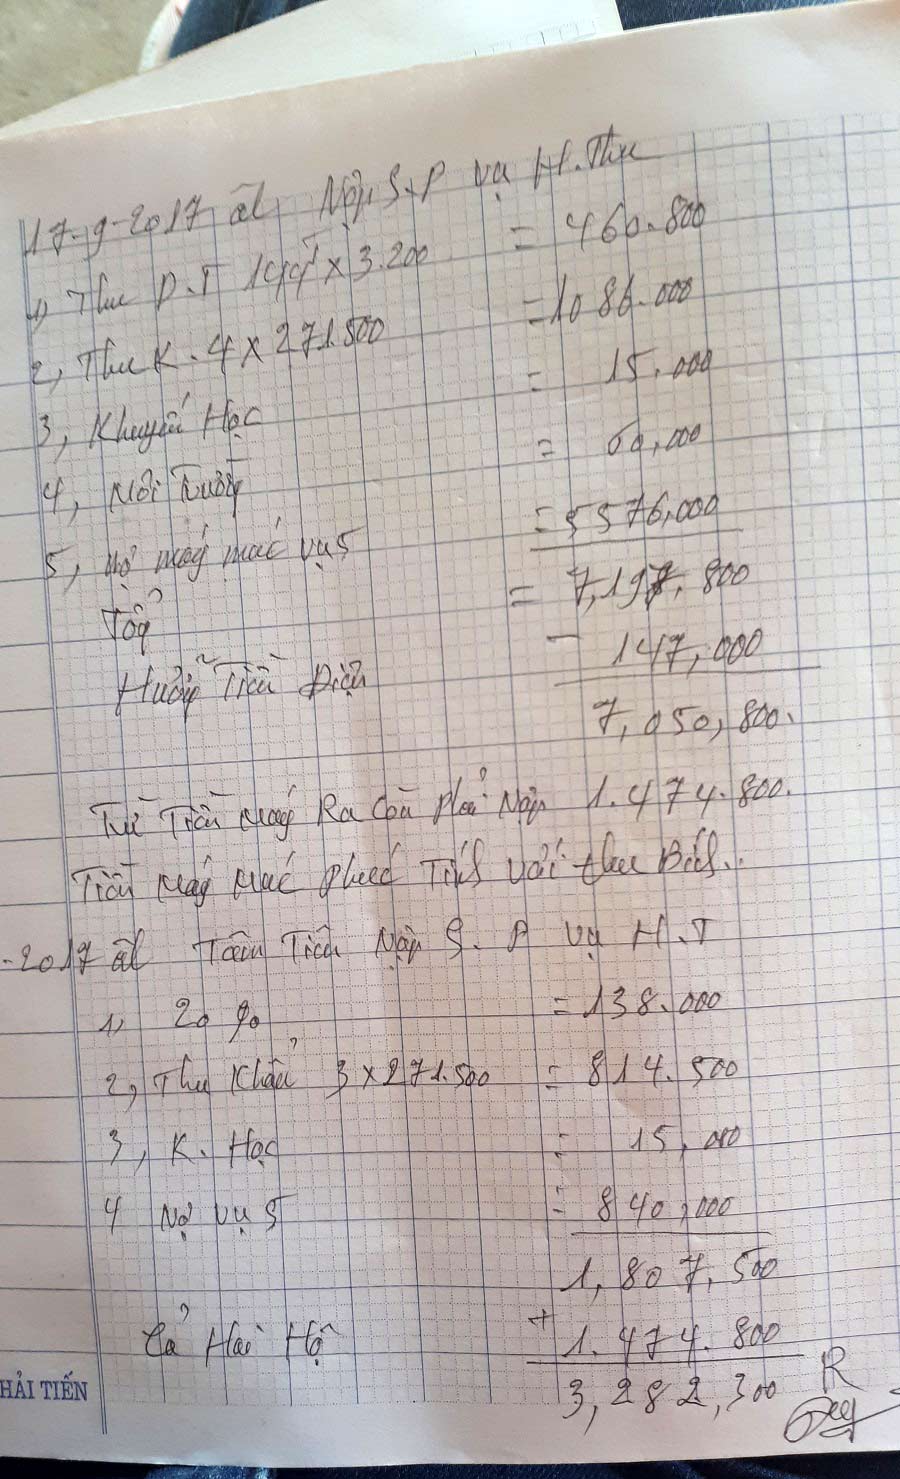 17-9-2017 âl Nộp S.P vụ H.Thu
1, Thu D.T 144 x 3.200 = 460.800
2, Thu K. 4 x 271.500 = 1086.000
3, Khuyến Học = 15.000
4, Môi Trường = 60,000
5, Nợ máy móc vụ 5 = 5576,000
Tổng = 7,197,800
Hưởng Tiền Điện - 147,000
7,050,800.
Trừ Tiền Máy Ra Còn Phải Nộp 1.474.800.
Tiền Máy Móc Tính với thu
-2017 âl Tiền Nộp S.P vụ H.T
1, 20 = 138.000
2, Thu Khẩu 3 x 271.500 = 814.500
3, K. Học = 15,000
4 Nợ vụ 5 = 840,000
1,807,500
Cả Hai Hộ + 1.474.800
3,282,300
R
HẢI TIẾN